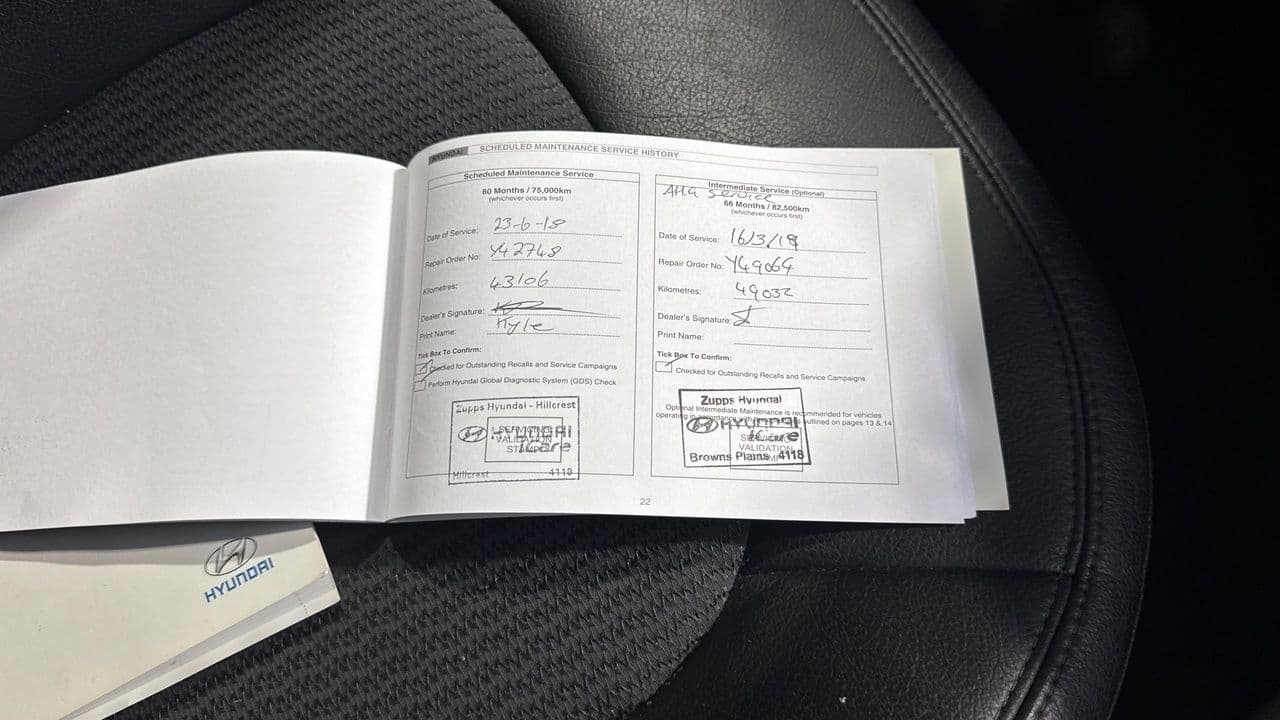 HYUNDAI SCHEDULED MAINTENANCE SERVICE HISTORY
Scheduled Maintenance Service
60 Months / 75,000km
(whichever occurs first)
Date of Service: 23-6-18
Repair Order No: Y42748
Kilometres: 43106
Dealer's Signature:
Print Name: Kyle
Tick Box To Confirm:
Checked for Outstanding Recalls and Service Campaigns
Perform Hyundai Global Diagnostic System (GDS) Check
Zupps Hyundai - Hillcrest
SERVICING
HYUNDAI
VALIDATION
iCare
STAMP
Hillcrest 4118
Intermediate Service (Optional)
Service
66 Months / 82,500km
(whichever occurs first)
Date of Service: 16/3/19
Repair Order No: Y49064
Kilometres: 49032
Dealer's Signature:
Print Name:
Tick Box To Confirm:
Checked for Outstanding Recalls and Service Campaigns
Zupps Hyundai
Optional Intermediate Maintenance is recommended for vehicles
operating in accordance with outlined on pages 13 & 14
HYUNDAI
iCare
SERVICING
VALIDATION
Browns Plains 4118
22
HYUNDAI